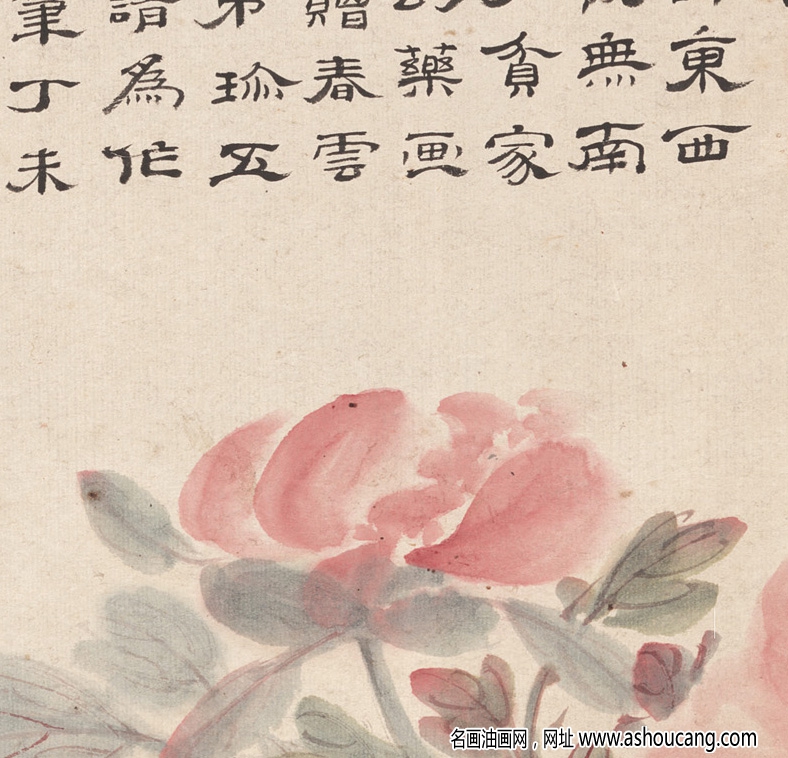 東西
無南
貧家
藥画
贈春雲
珍五
請為作
筆丁未
名画油画网，网址 www.ashoucang.com